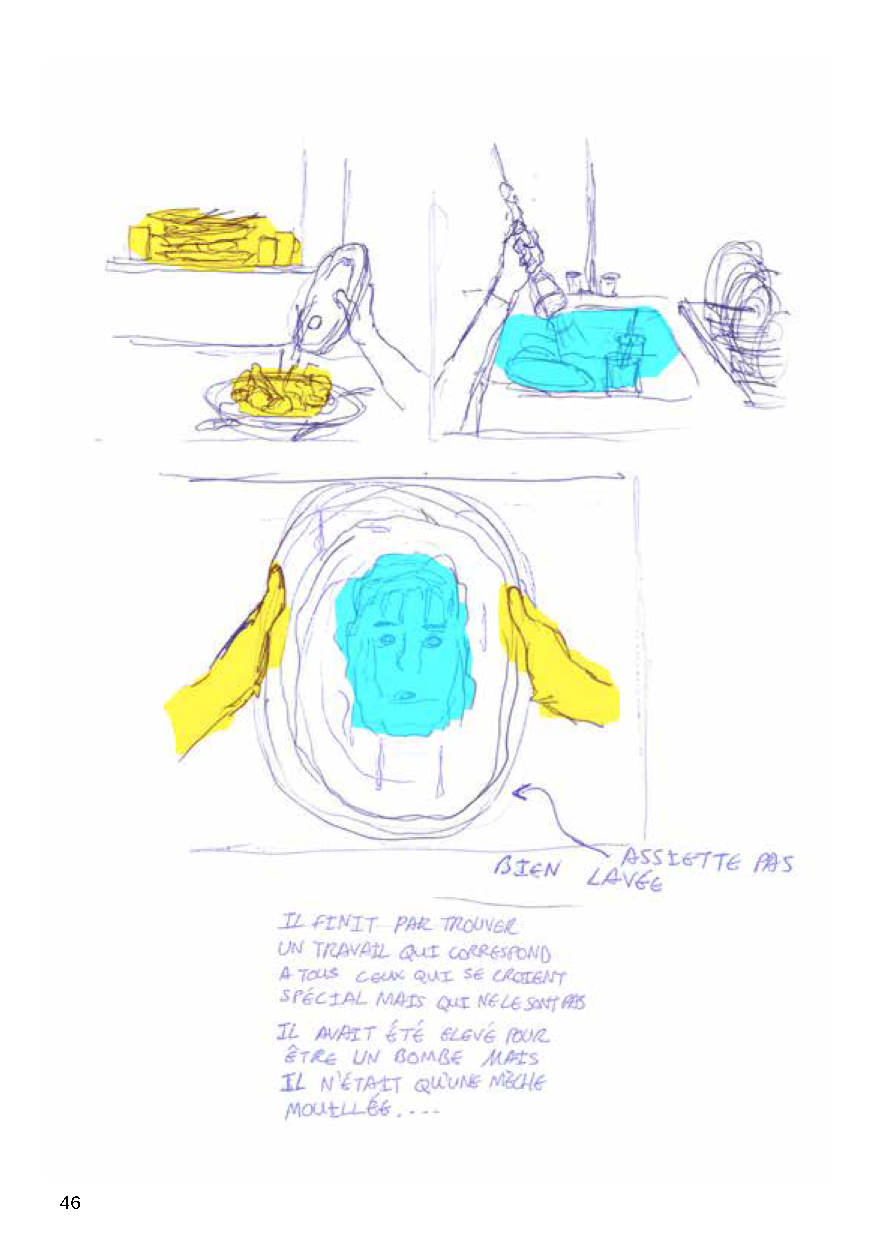 ASSIETTE PAS
BIEN LAVÉE
IL FINIT PAR TROUVER
UN TRAVAIL QUI CORRESPOND
A TOUS CEUX QUI SE CROIENT
SPÉCIAL MAIS QUI NE LE SONT PAS
IL AVAIT ÉTÉ ELEVÉ POUR
ÊTRE UN BOMBE MAIS
IL N'ÉTAIT QU'UNE MÈCHE
MOUILLÉE....
46